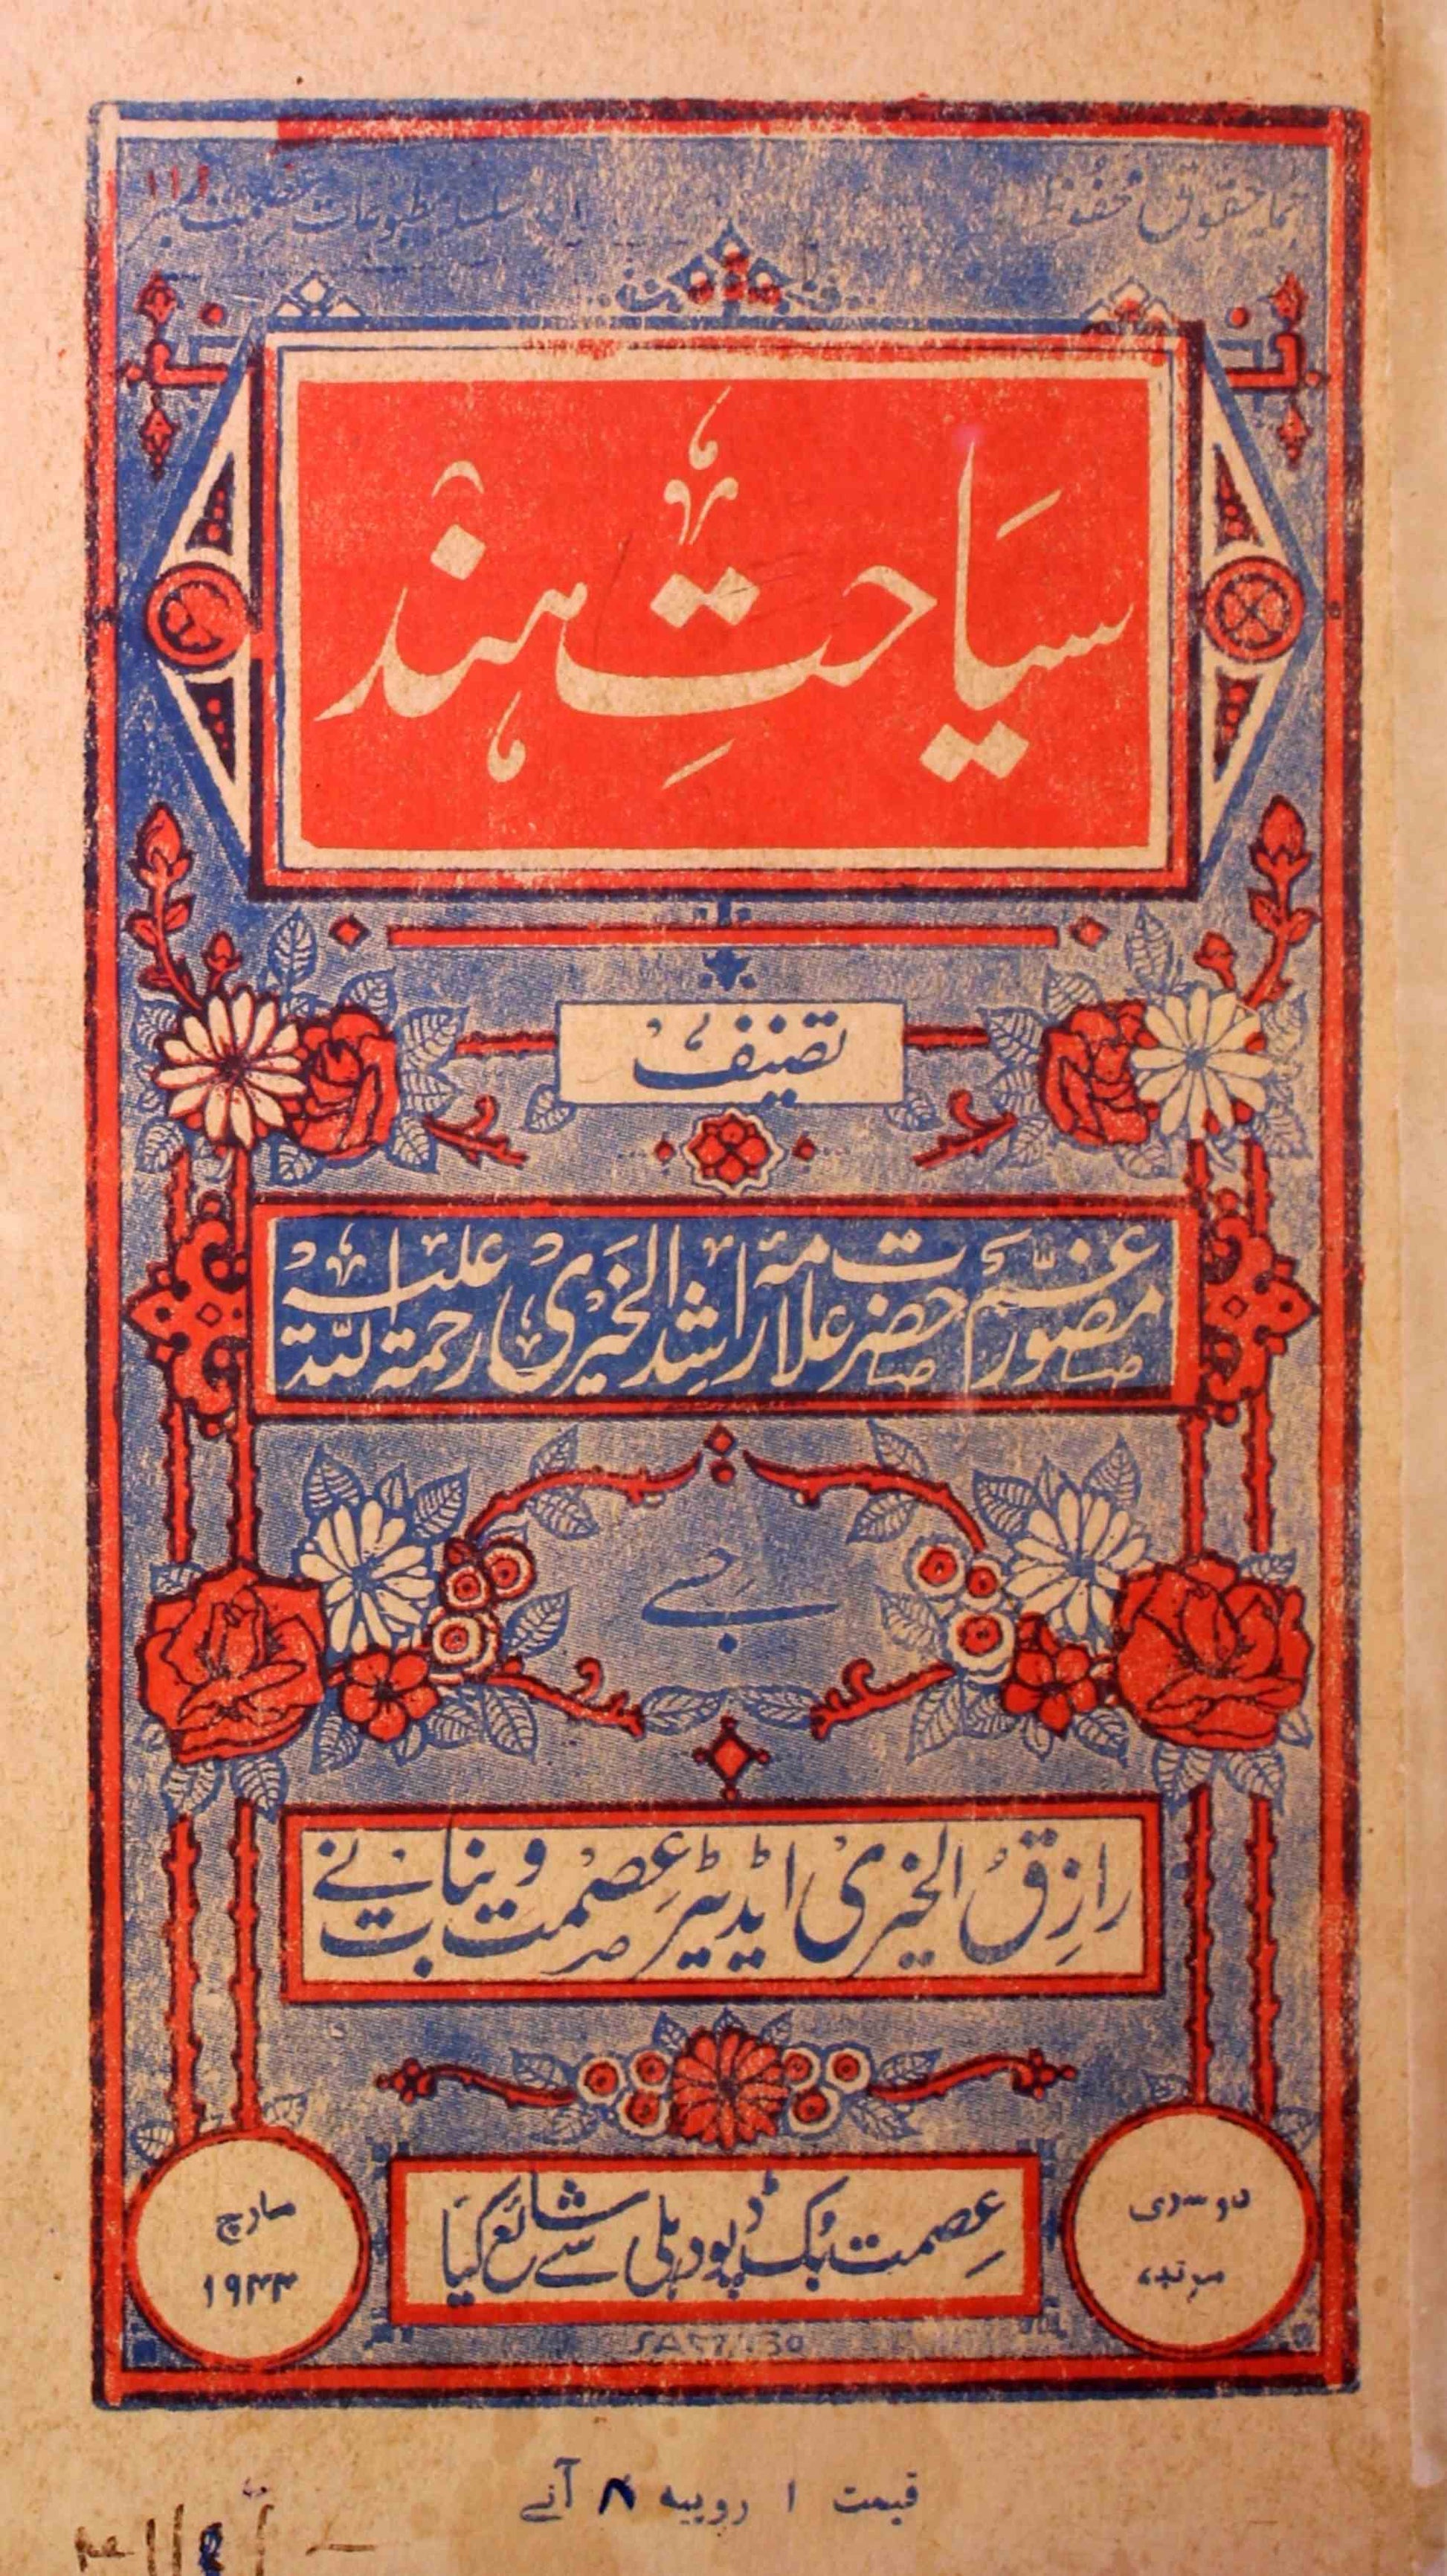 جملہ حقوق محفوظ
سلسلہ مطبوعات عصمت نمبر ۱۱۹
سیاحتِ ہند
تصنیف
مصورِ غم حضرت علامہ راشد الخیری رحمۃ اللہ علیہ
جسے
رازق الخیری ایڈیٹر عصمت و بنات نے
عصمت بک ڈپو دہلی سے شائع کیا
دوسری
مرتبہ
مارچ
۱۹۴۴
قیمت ۱ روپیہ ۸ آنے